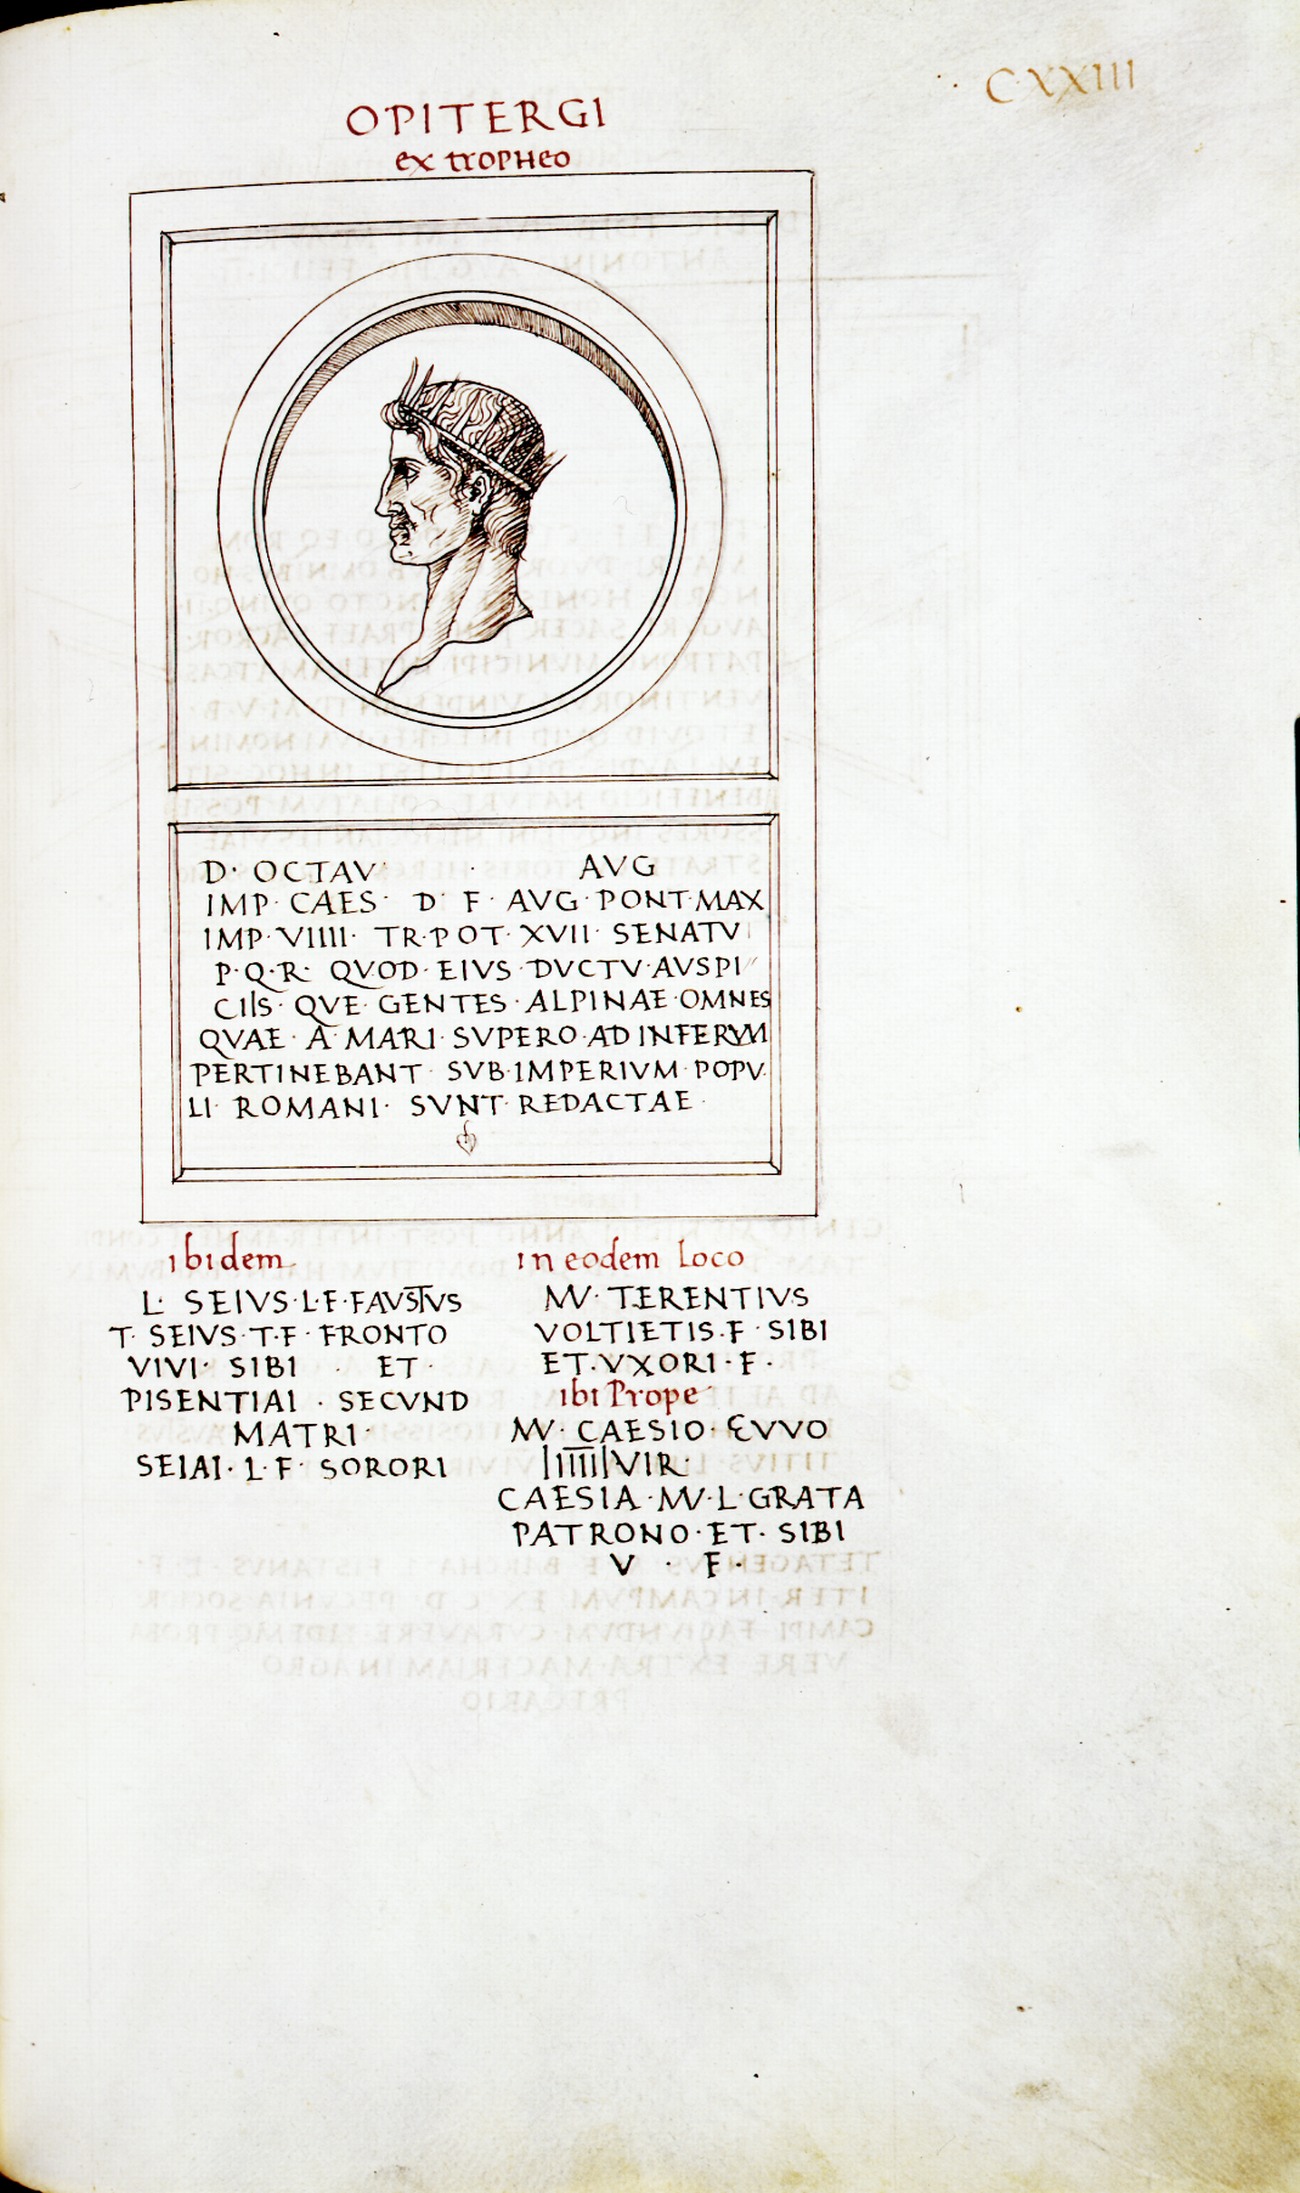 C·XXIII
OPITERGI
ex tropheo
D· OCTAV· · AVG
IMP· CAES· D· F· AVG· PONT·MAX
IMP·VIIII· TR·POT· XVII· SENATV
P·Q·R· QVOD·EIVS·DVCTV·AVSPI
CIIS·QVE·GENTES·ALPINAE·OMNES
QVAE·A·MARI·SVPERO·AD INFERVM
PERTINEBANT·SVB·IMPERIVM·POPV·
LI· ROMANI· SVNT·REDACTAE·
ibidem
L· SEIVS·L·F·FAVSTVS
T· SEIVS·T·F·FRONTO
VIVI· SIBI · ET·
PISENTIAI · SECVND
MATRI·
SEIAI·L·F· SORORI
in eodem Loco
M· TERENTIVS
VOLTIETIS·F·SIBI
ET·VXORI·F·
ibi Prope
M· CAESIO· EVVO
IIIIIIVIR·
CAESIA·M·L·GRATA
PATRONO·ET· SIBI
V · F·